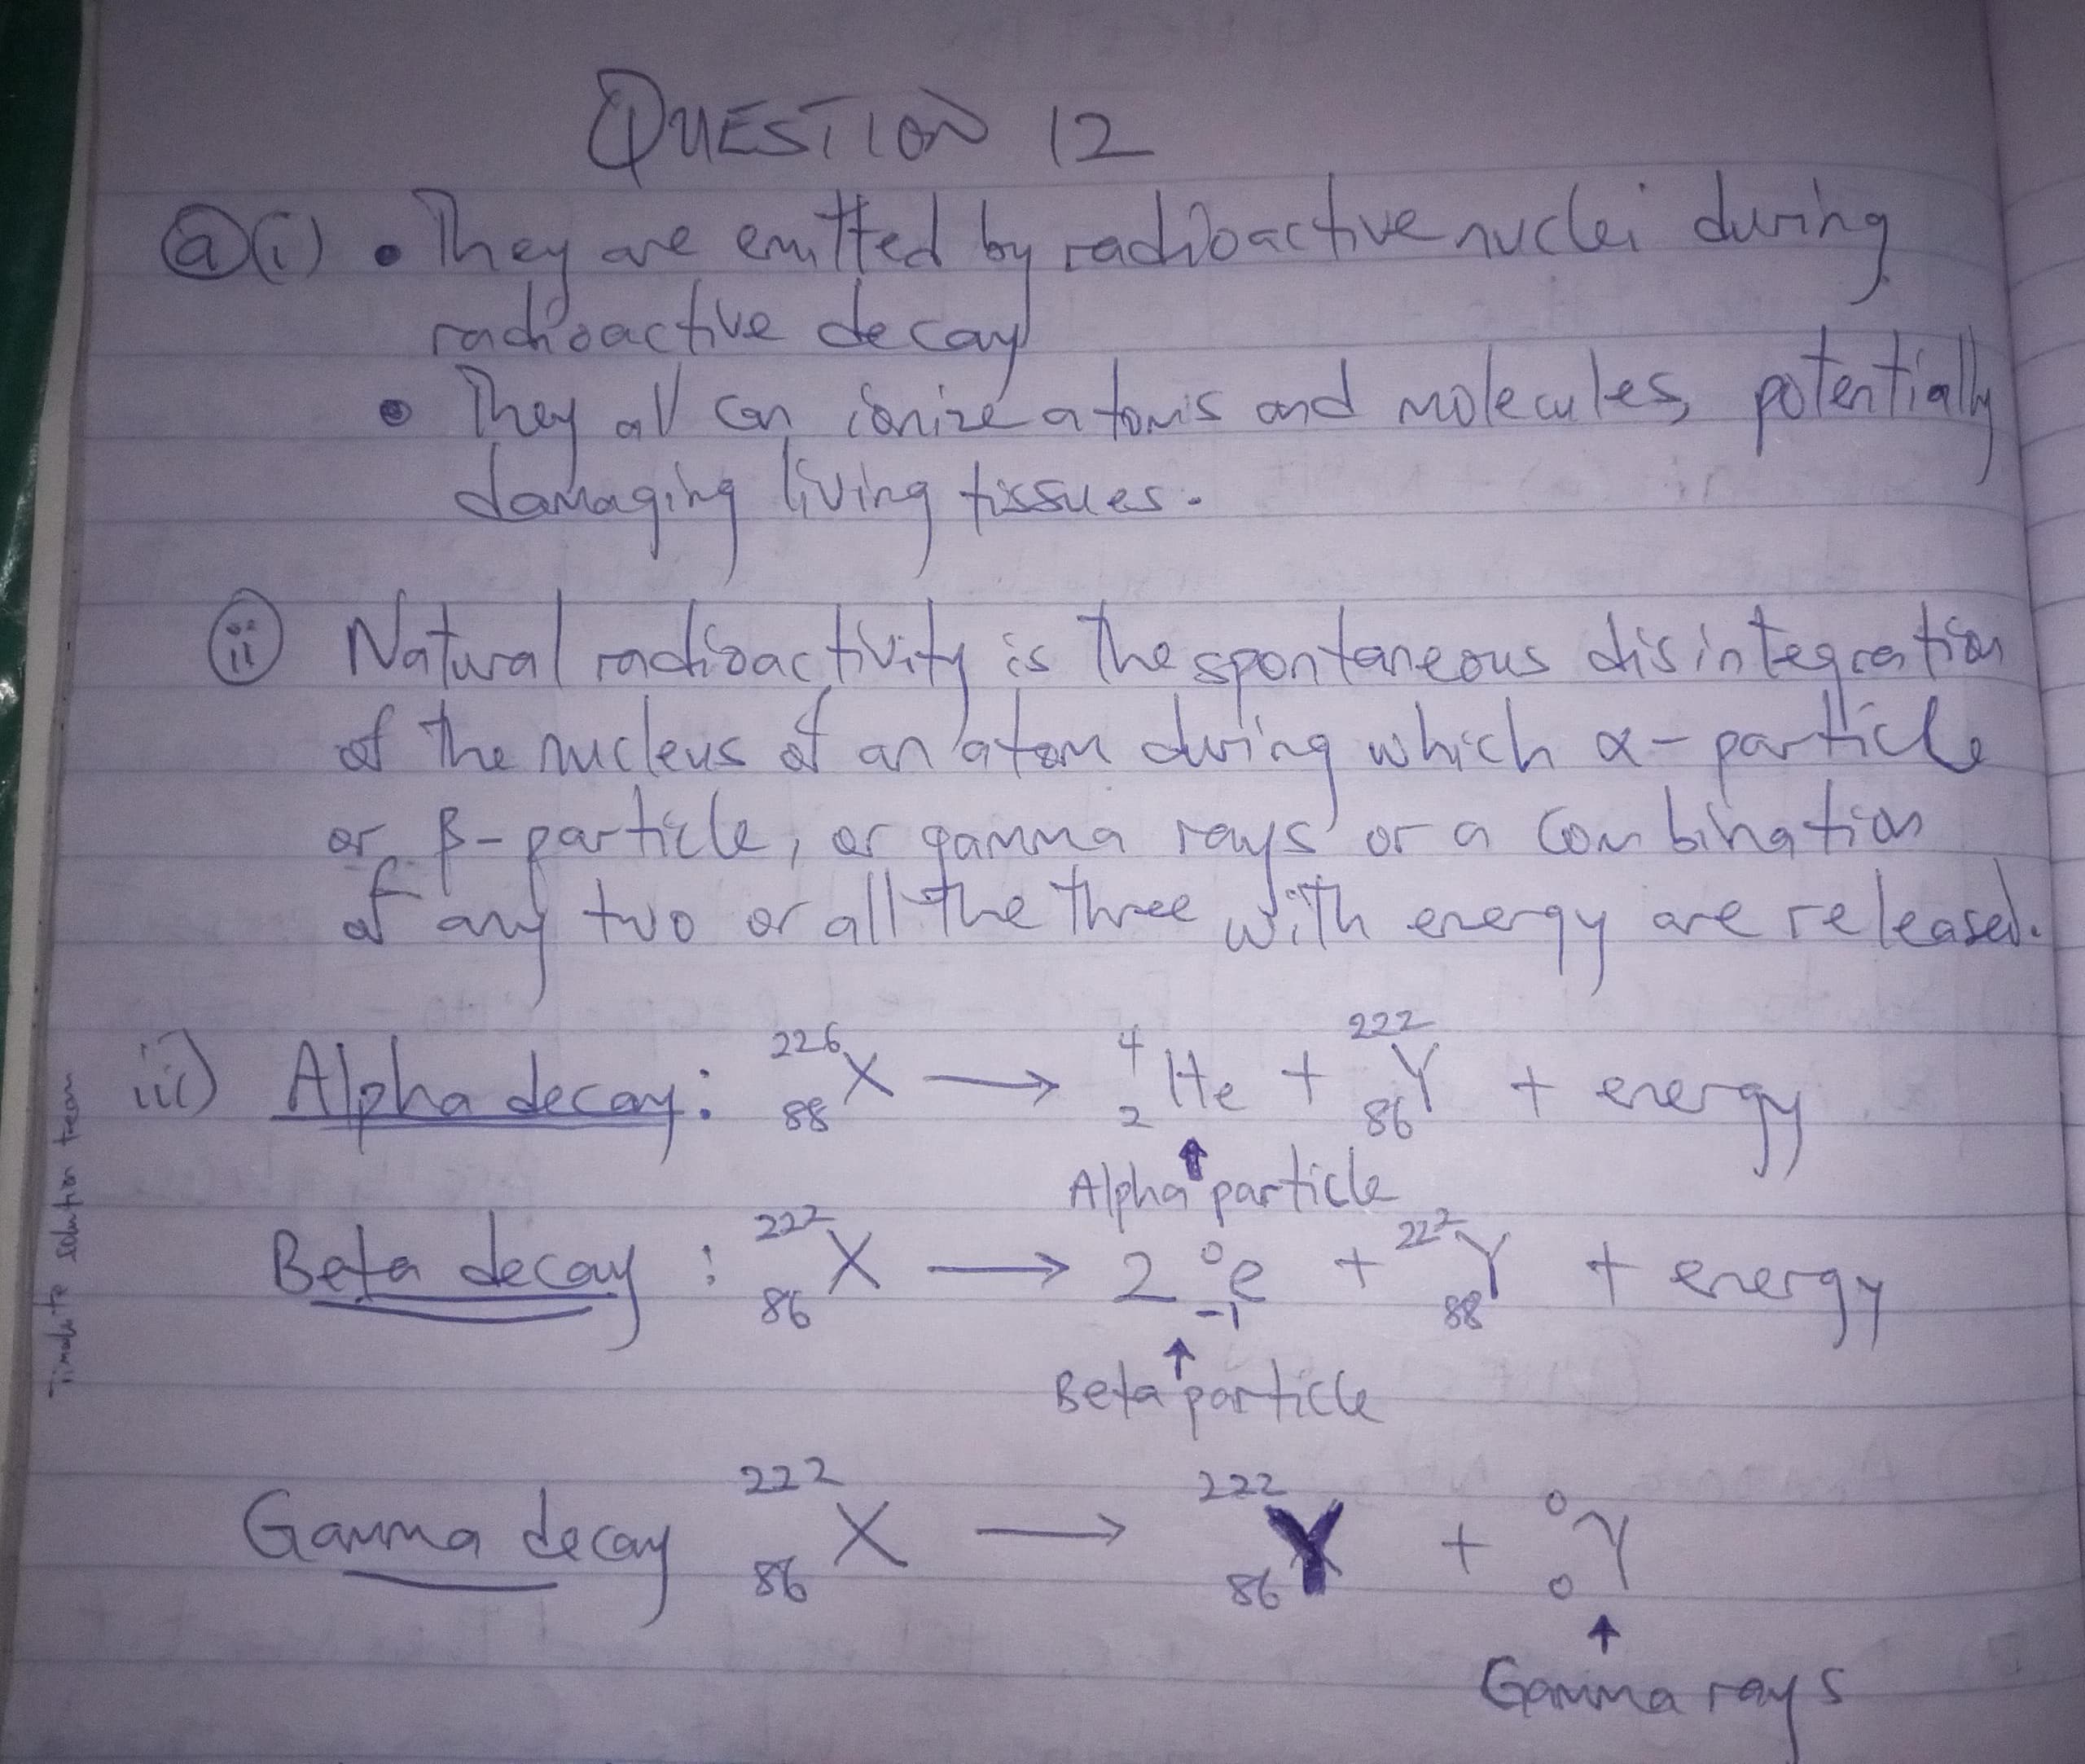 QUESTION 12
a(i) • They are emitted by radioactive nuclei during
radioactive decay
• They all can ionize atoms and molecules, potentially
damaging living tissues.
ii Natural radioactivity is the spontaneous disintegration
of the nucleus of an atom during which α-particle
or β-particle, or gamma rays or a combination
of any two or all the three with energy are released.
iii) Alpha decay: ²²⁶₈₈X → ⁴₂He + ²²²₈₆Y + energy
Alpha particle
Beta decay: ²²²₈₆X → 2 ⁰₋₁e + ²²²₈₈Y + energy
Beta particle
Gamma decay ²²²₈₆X → ²²²₈₆Y + ⁰₀γ
Gamma rays
solution team